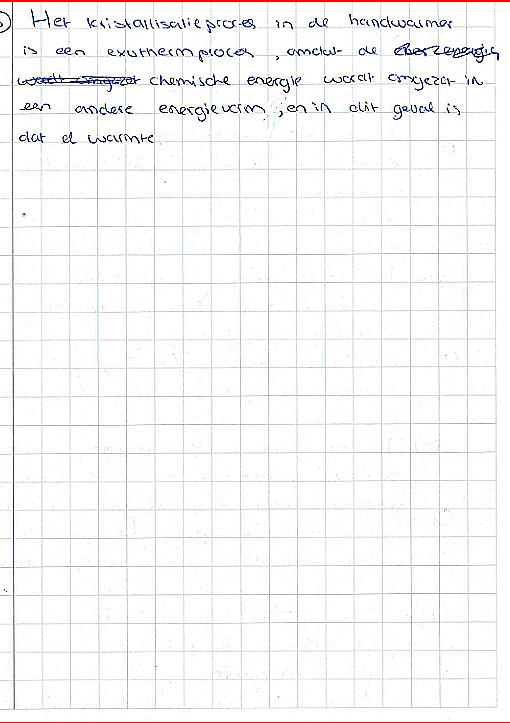 Het kristallisatieproces in de handwarmer
is een exotherm proces, omdat de
chemische energie wordt omgezet in
een andere energievorm, en in dit geval is
dat d warmte